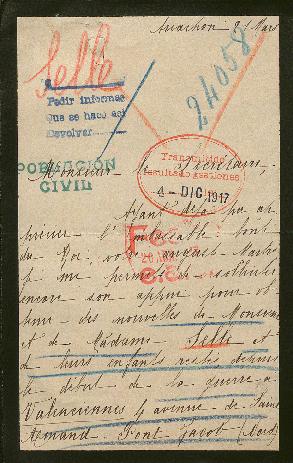 Arcachon 21 Mars
Selle
24058
Pedir informes
Que se hace así
Devolver
Monsieur le Secrétaire,
POBLACIÓN
CIVIL
Transmitido
resultado gestiones
4 - DIC 1917
Ayant déjà pu ap
précier l'inlassable bonté
du Roi, votre auguste Maître
je me permets de solliciter
encore son appui pour ob
tenir des nouvelles de Monsieur
et de Madame Selle et
de leurs enfants restés depuis
le début de la guerre à
Valenciennes 4 avenue de Saint
Armand Pont Jacob (Nord)